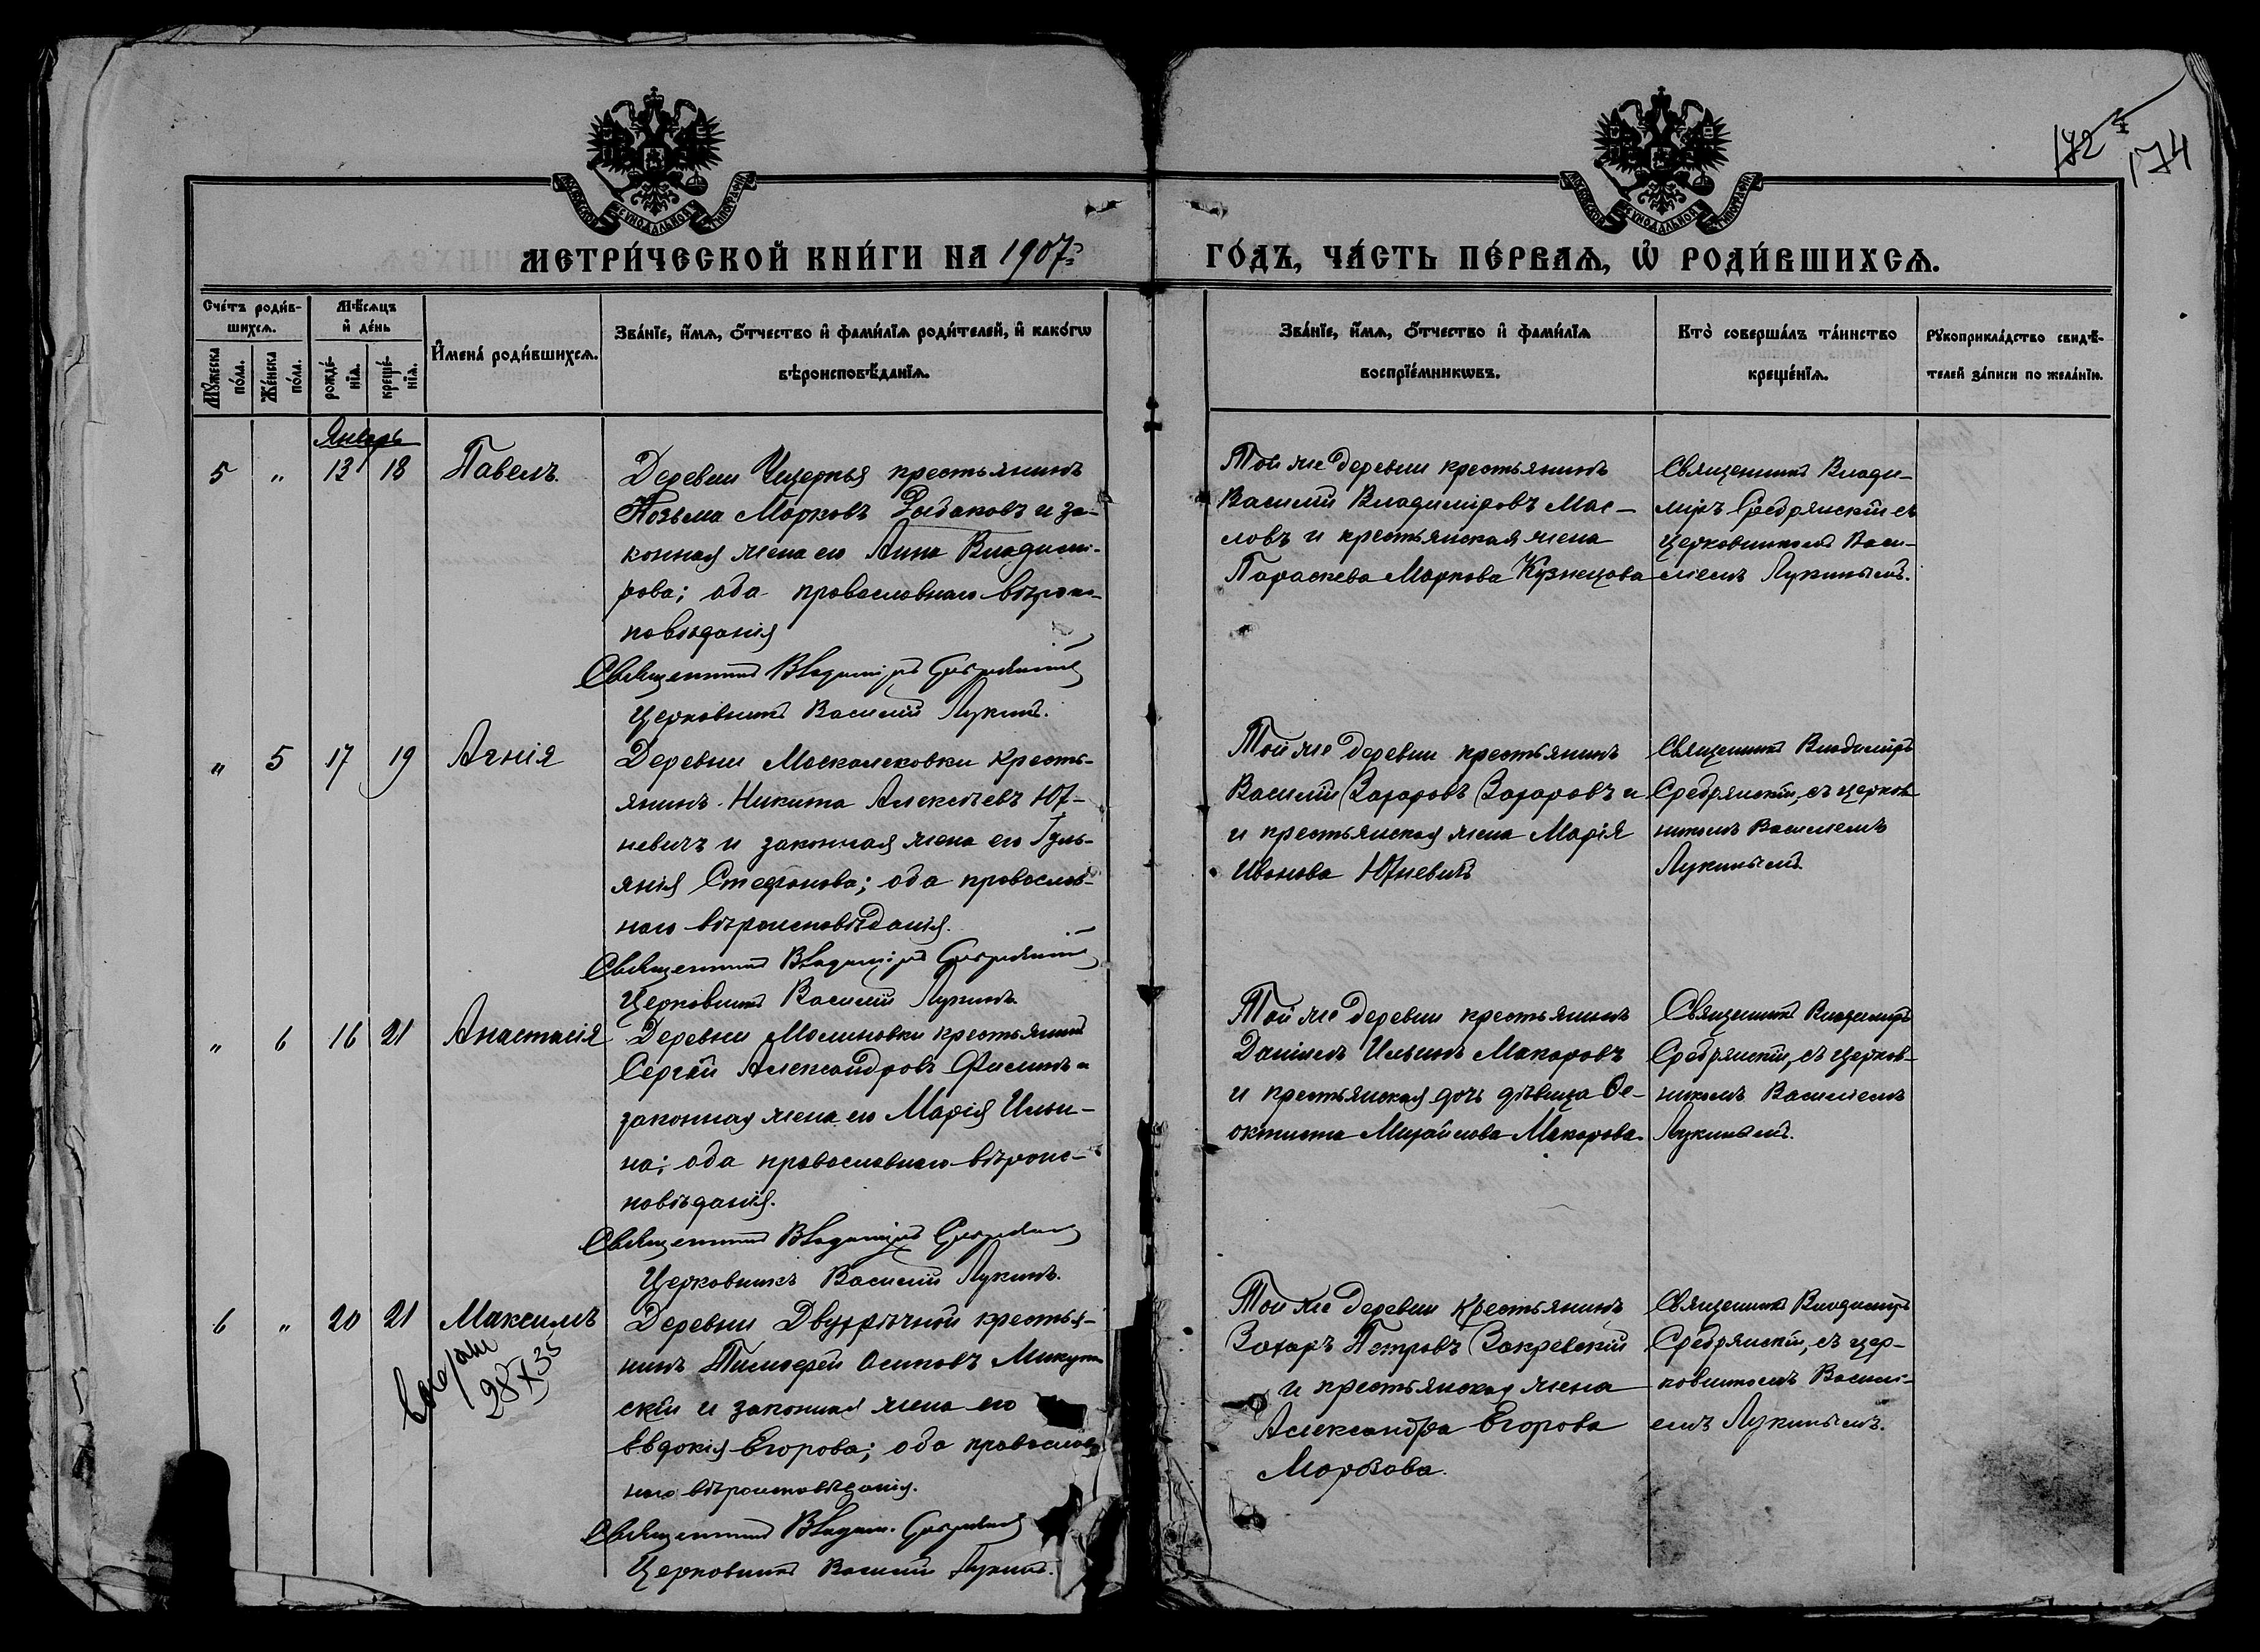 172
174
МОСКОВСКОЙ СѴНОДАЛЬНОЙ ТИПОГРАФІИ
МОСКОВСКОЙ СѴНОДАЛЬНОЙ ТИПОГРАФІИ
МЕТРИ́ЧЕСКОЙ КНИ́ГИ НА 1907 г.
ГО́ДЪ, ЧА́СТЬ ПЕ́РВАѦ, Ѡ҆ РОДИ́ВШИХСѦ.
Сче́тъ роди́в-
шихсѧ.
Мꙋ́жеска по́ла.
Же́нска по́ла.
Мѣ́сѧцъ
и҆ де́нь
рожде́-
нїѧ.
креще́-
нїѧ.
И҆мена̀ роди́вшихсѧ.
Зва́нїе, и҆́мѧ, ѻ҆́тчество и҆ фами́лїѧ роди́телей, и҆ како́гѡ
вѣроисповѣ́данїѧ.
Зва́нїе, и҆́мѧ, ѻ҆́тчество и҆ фами́лїѧ
воспрїе́мникѡвъ.
Кто̀ соверша́лъ та́инство
креще́нїѧ.
Рꙋкоприкла́дство свидѣ́-
телей за́писи по жела́нїю.
Январь
5 " 13 18 Павелъ.
Деревни крестьянинъ
Козьма Марковъ Рыбаковъ и за-
конная жена его Анна Владимі-
рова; оба православнаго вѣроис-
повѣданія
Священникъ Владиміръ Сребрянскій
Церковникъ Василій Лукинъ.
Той же деревни крестьянинъ
Василій Владиміровъ Мас-
ловъ и крестьянская жена
Параскева Маркова Кузнецова
Священникъ Влади-
міръ Сребрянскій съ
церковникомъ Васи-
ліемъ Лукинымъ.
" 5 17 19 Агнія
Деревни Москалековки кресть-
янинъ Никита Алексѣевъ Юх-
невичъ и законная жена его Іуль-
янія Стефанова; оба православ-
наго вѣроисповѣданія.
Священникъ Владиміръ Сребрянскій
Церковникъ Василій Лукинъ.
Той же деревни крестьянинъ
Василій Захаровъ Захаровъ и
и крестьянская жена Марія
Иванова Юхневичъ
Священникъ Владиміръ
Сребрянскій, съ церков-
никомъ Василіемъ
Лукинымъ.
" 6 16 21 Анастасія
Деревни Малиновки крестьянинъ
Сергѣй Александровъ Филинъ и
законная жена его Марія Ильи-
на; оба православнаго вѣроис-
повѣданія.
Священникъ Владиміръ Сребрянскій
Церковникъ Василій Лукинъ.
Той же деревни крестьянинъ
Даніилъ Ильинъ Макаровъ
и крестьянская дочь дѣвица Ѳе-
октиста Михайлова Макарова.
Священникъ Владиміръ
Сребрянскій, съ церков-
никомъ Василіемъ
Лукинымъ.
6 " 20 21 Максимъ
28 X 35
Деревни Двухрѣчной крестья-
нинъ Тимоѳей Осиповъ
скій и законная жена его
Евдокія Егорова; оба православ-
наго вѣроисповѣданія.
Священникъ Владим. Сребрянскій
Церковникъ Василій Лукинъ.
Той же деревни крестьянинъ
Захаръ Петровъ Закревскій
и крестьянская жена
Александра Егорова
Морозова.
Священникъ Владиміръ
Сребрянскій, съ цер-
ковникомъ Васили-
емъ Лукинымъ.